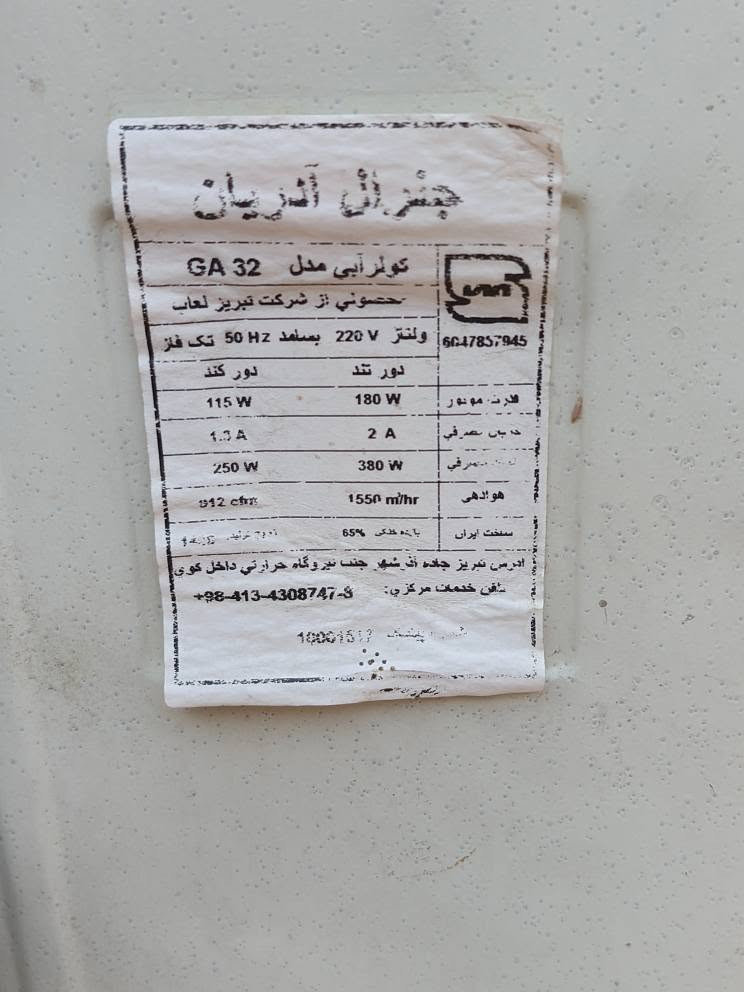 جنرال آدریان
کولر آبی مدل GA 32
محصولی از شرکت تبریز لعاب
6047857945
ولتاژ 220 V بسامد 50 Hz تک فاز
دور تند دور کند
قدرت موتور 180 W 115 W
2 A 1.3 A
380 W 250 W
هوادهی 1550 m/hr 912 cfm
ساخت ایران بازده خنکی 65%
ادرس تبریز جاده آذرشهر جنب نیروگاه حرارتی داخل کوی
تلفن خدمات مرکزی: +98-413-4308747-8